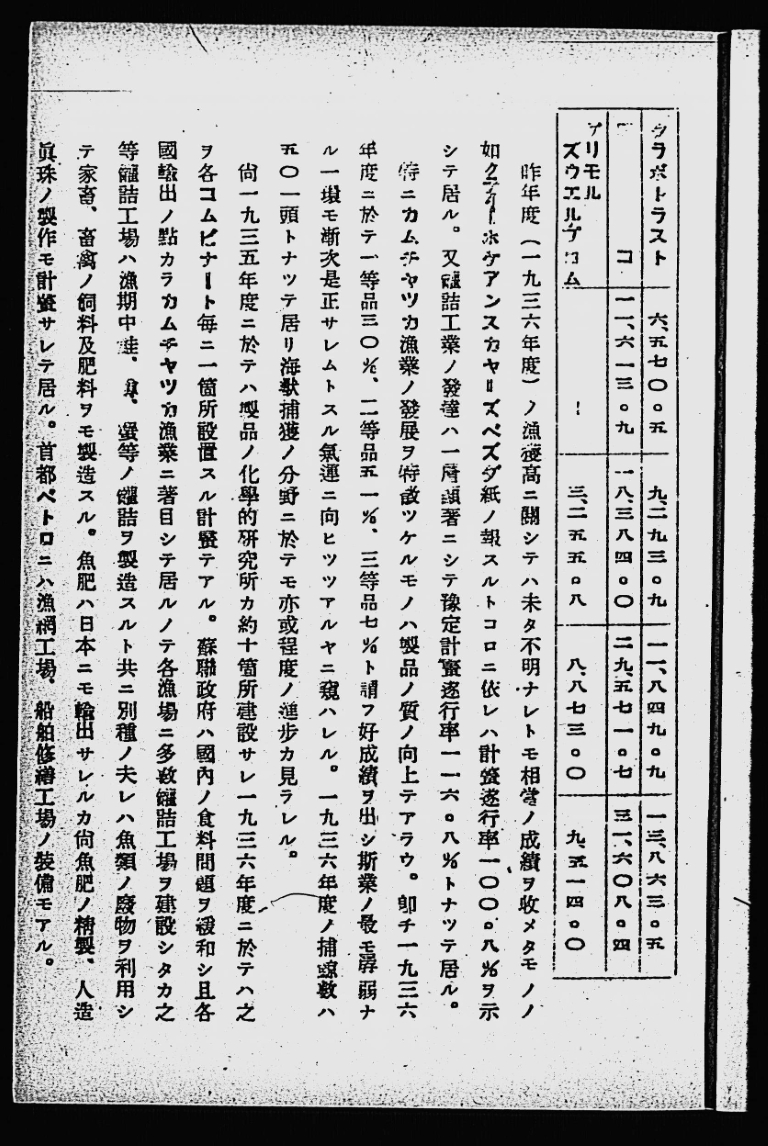 クラボトラスト 六、五七〇。五 九、二九三。九 一一、八四九。九 一三、八六三。五
コ 一一、六一三。九 一八、三八四。〇 二九、五七一。七 三一、六〇八。四
プリモル
ズウエルプロム ― 三、二五五。八 八、八七三。〇 九、五一四。〇
昨年度(一九三六年度)ノ漁獲高ニ關シテハ未タ不明ナレトモ相當ノ成績ヲ收メタモノノ
如クホケアンスカヤーズベズダ紙ノ報スルトコロニ依レハ計畫遂行率一〇〇。八%ヲ示
シテ居ル。又罐詰工業ノ發達ハ一層顯著ニシテ豫定計畫遂行率一一六。八%トナツテ居ル。
特ニカムチヤツカ漁業ノ發展ヲ特徴ツケルモノハ製品ノ質ノ向上テアラウ。卽チ一九三六
年度ニ於テ一等品三〇%、二等品五一%、三等品七%ト謂フ好成績ヲ出シ斯業ノ最モ孱弱ナ
ル一環モ漸次是正サレムトスル氣運ニ向ヒツツアルヤニ窺ハレル。一九三六年度ノ捕鯨數ハ
五〇一頭トナツテ居リ海獸捕獲ノ分野ニ於テモ亦或程度ノ進步カ見ラレル。
尙一九三五年度ニ於テハ製品ノ化學的硏究所カ約十箇所建設サレ一九三六年度ニ於テハ之
ヲ各コムビナート每ニ一箇所設置スル計畫テアル。蘇聯政府ハ國內ノ食料問題ヲ緩和シ且各
國輸出ノ點カラカムチヤツカ漁業ニ著目シテ居ルノテ各漁場ニ多數罐詰工場ヲ建設シタカ之
等罐詰工場ハ漁期中鮭、鱒、蟹等ノ罐詰ヲ製造スルト共ニ別種ノ夫レハ魚類ノ廢物ヲ利用シ
テ家畜、畜禽ノ飼料及肥料ヲモ製造スル。魚肥ハ日本ニモ輸出サレルカ尙魚肥ノ精製、人造
眞珠ノ製作モ計畫サレテ居ル。首都ペトロニハ漁網工場、船舶修繕工場ノ裝備モアル。